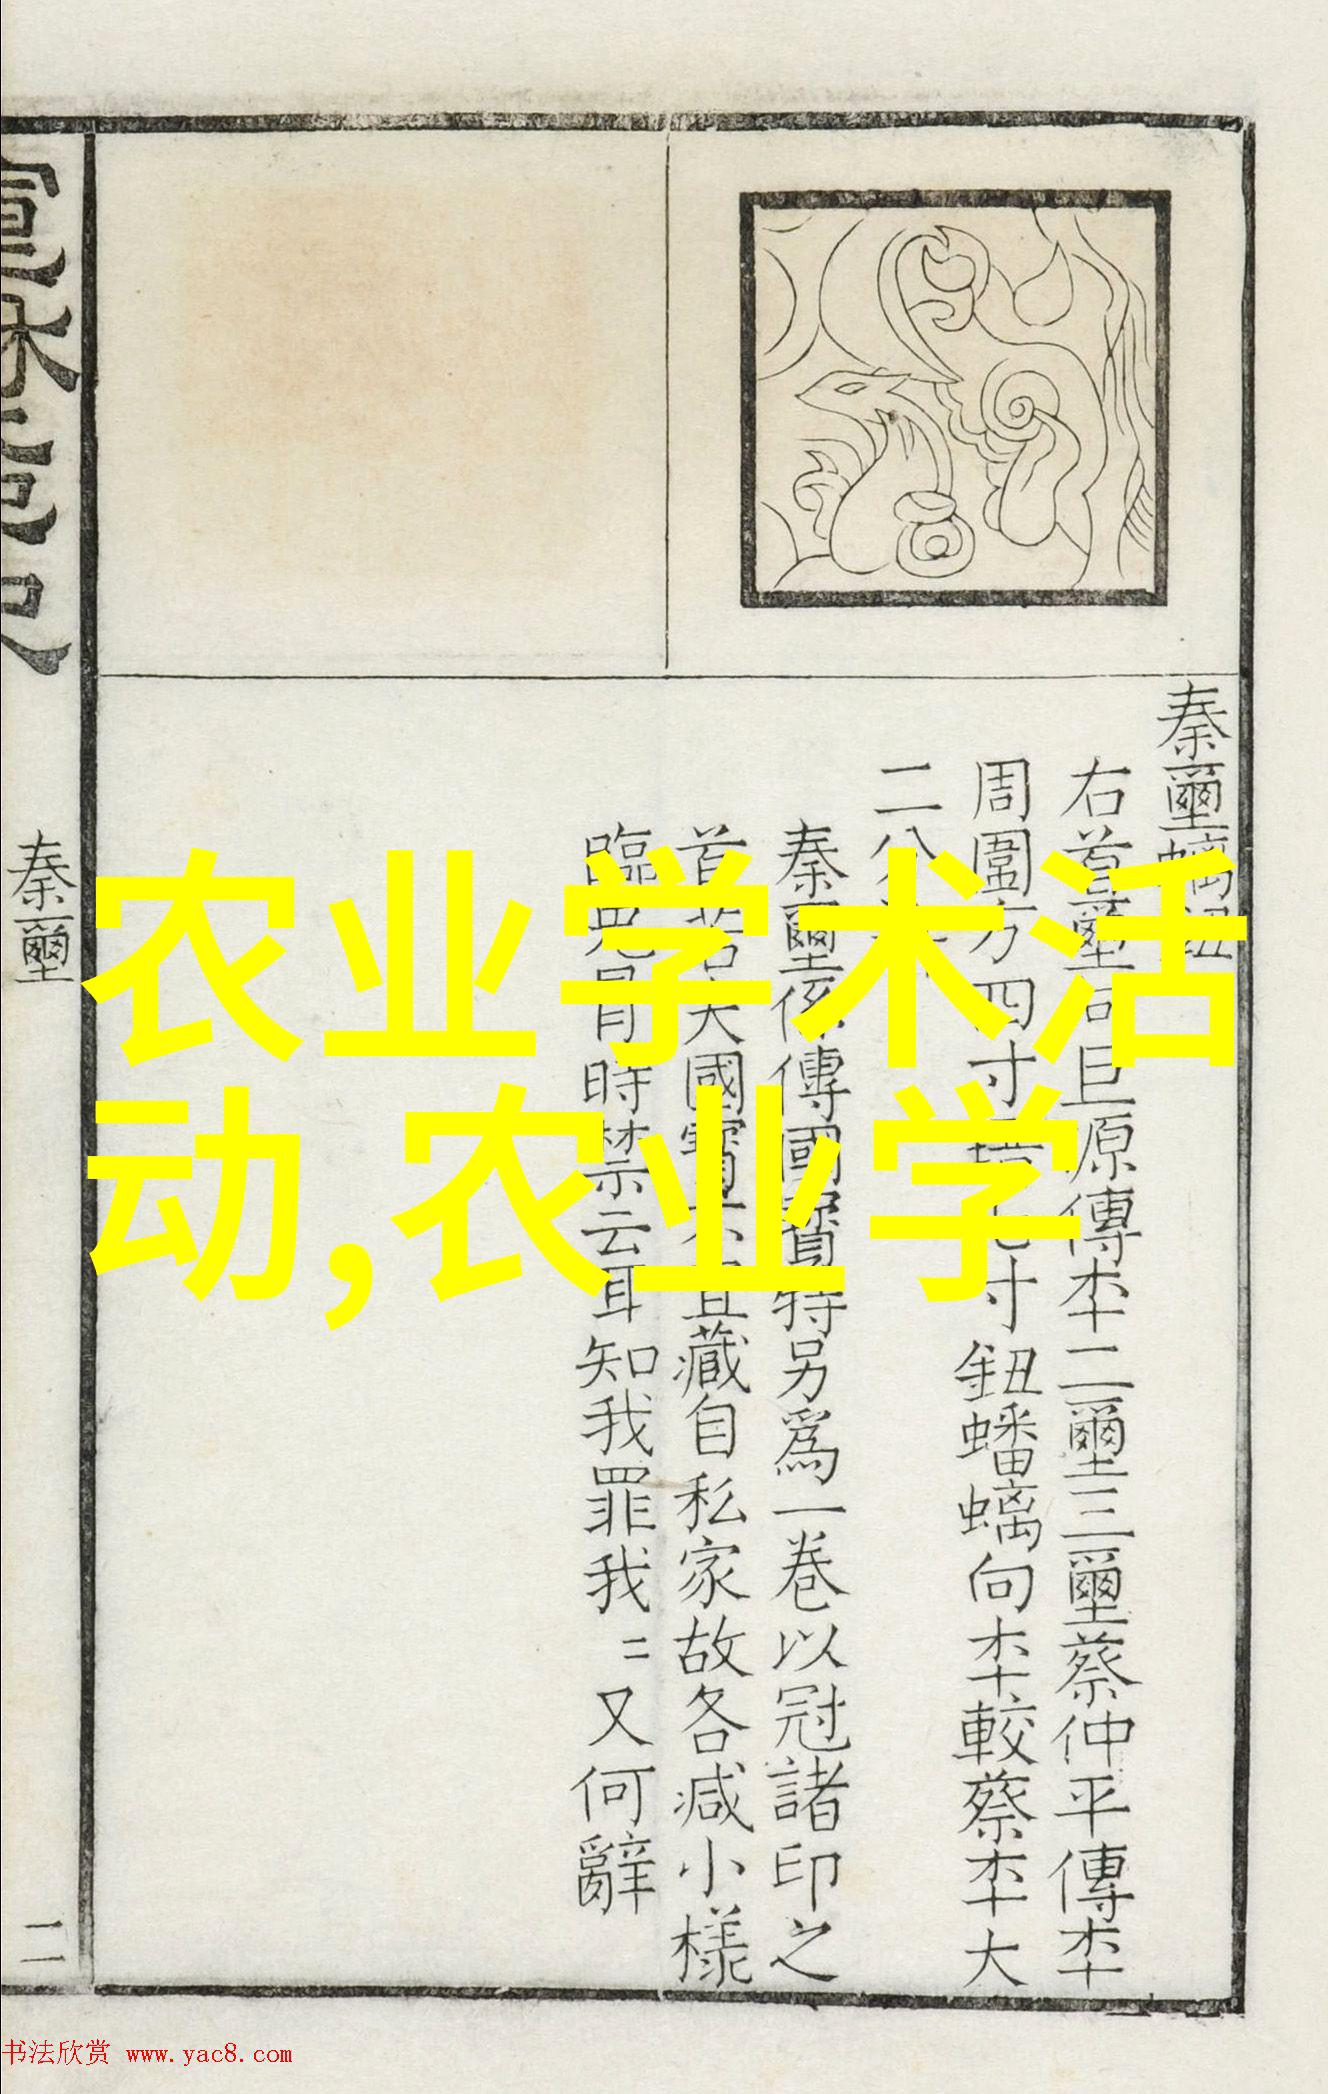 秦璽螭鈕
右首璽向巨原傳本二璽三璽蔡仲平傳本
周圍方四寸 寸鈕蟠螭向本較蔡本大
二分
秦璽係傳國寶特另爲一卷以冠諸印之
首 大國寶不宜藏自私家故各減小樣
臨 時禁云耳知我罪我二又何辭
秦璽
二
农业学术活
动,农业学
书法欣赏 www.yac8.com